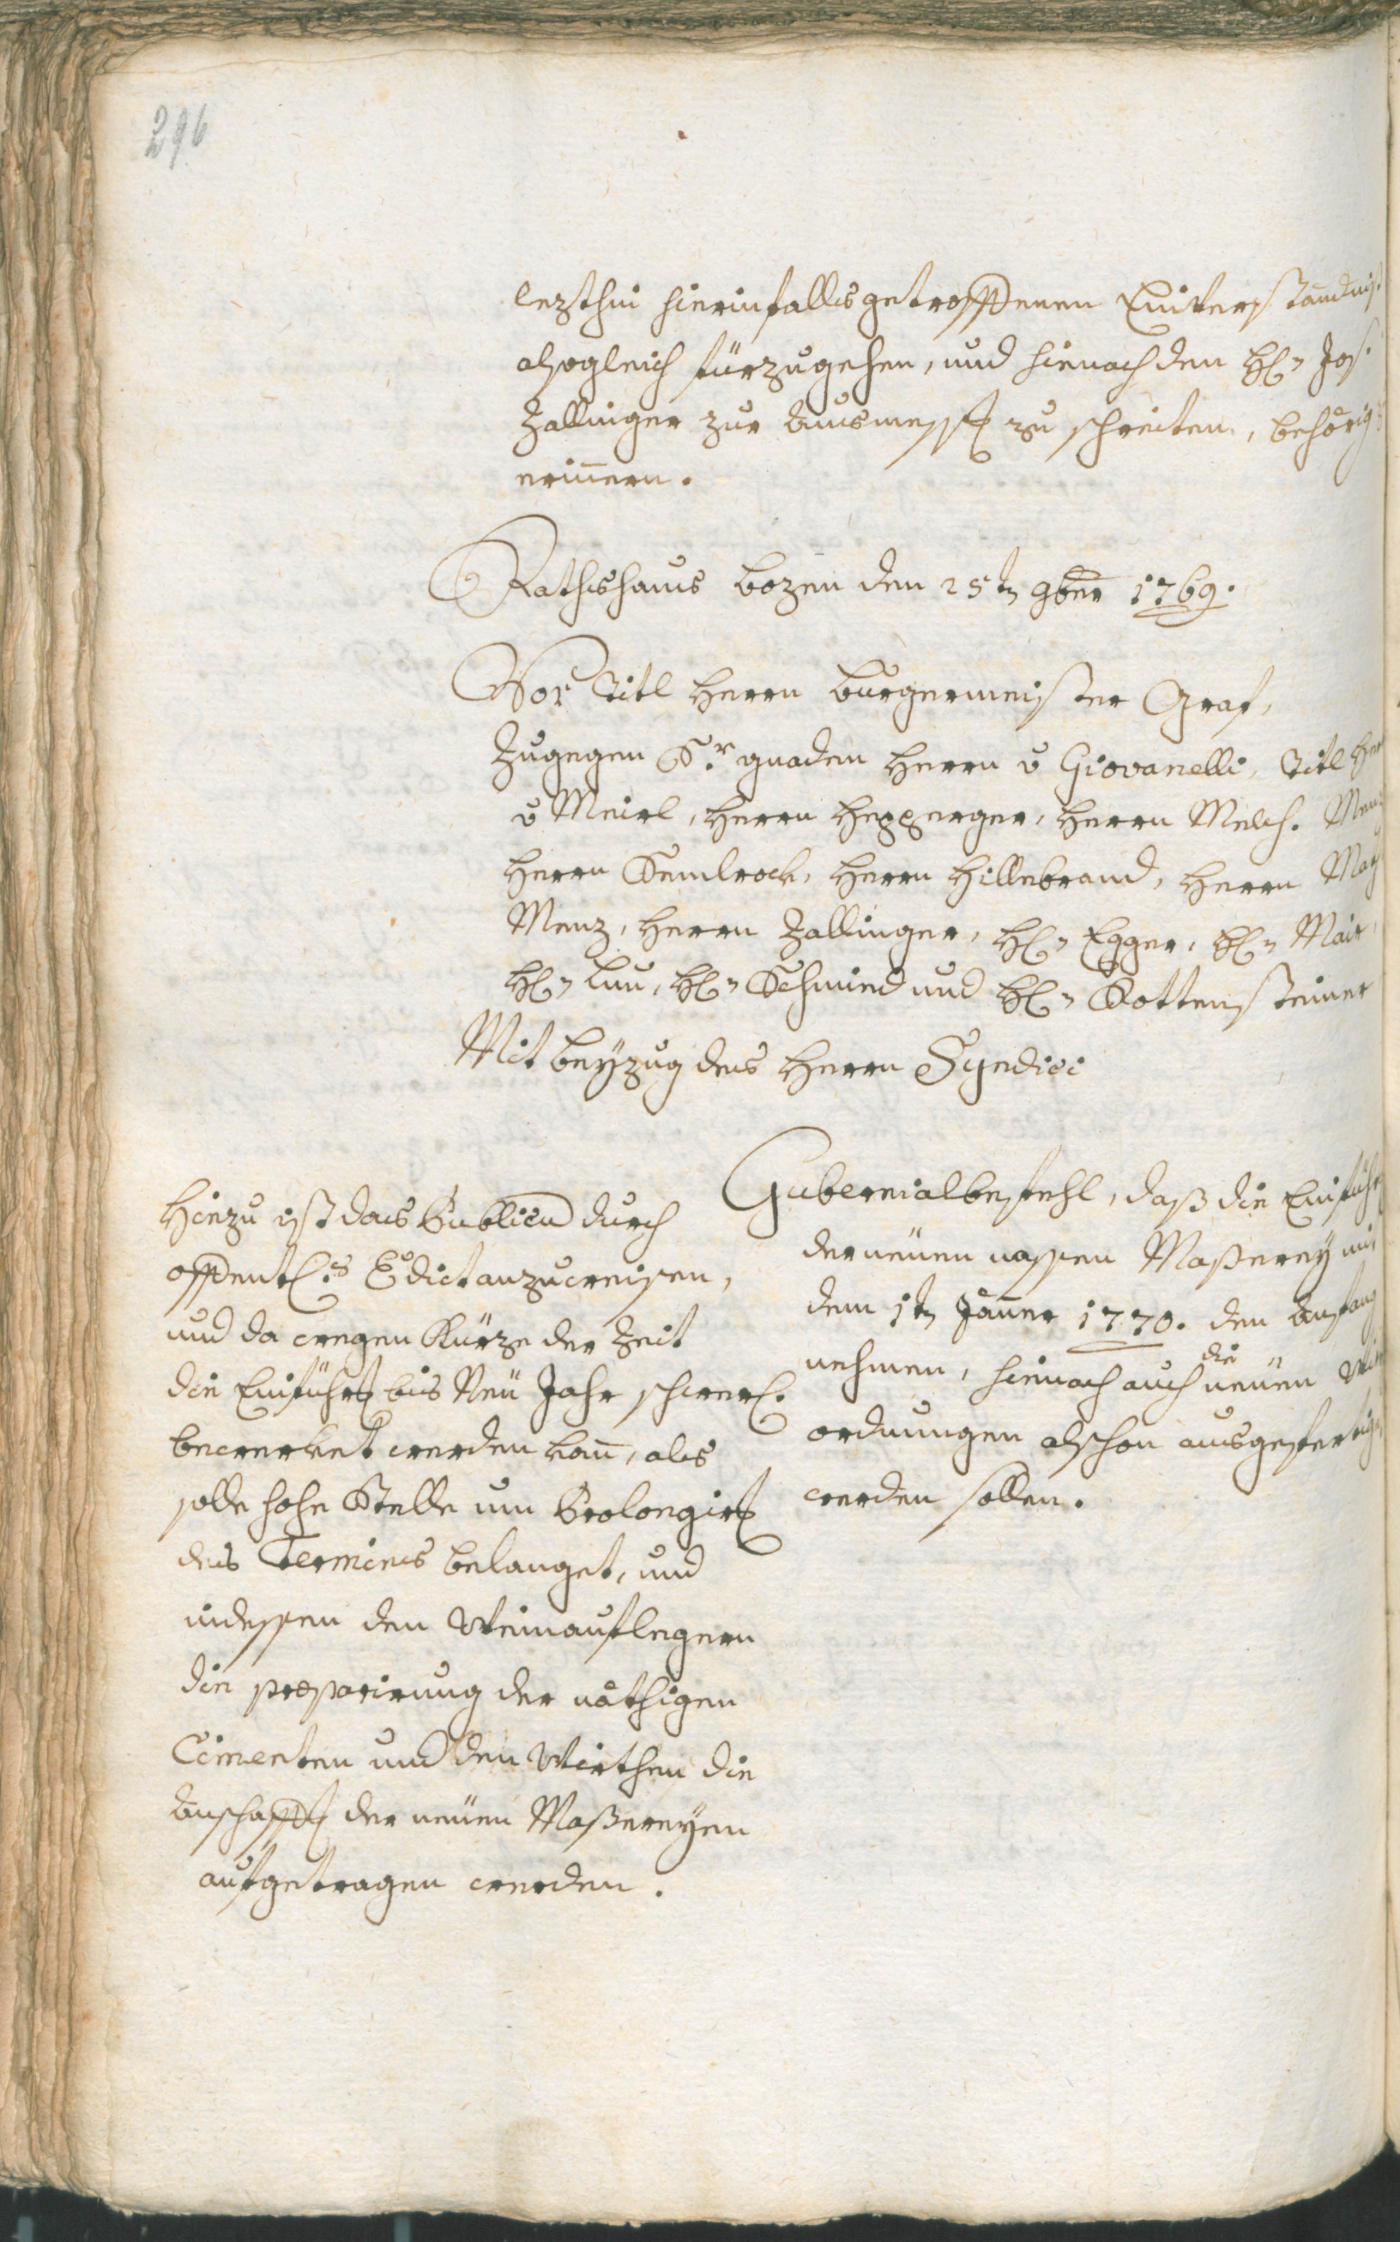 296
lezthin hierinfalls getroffenen Einverständnis
alsogleich fürzugehen, und hienach den H. Jos.
Zallinger zur Ausmess. zu schreiten, behörig
erinnern.
Rathshaus Bozen den 25tn 9ber 1769.
Vor Titl Herrn Burgermeister Graf,
Zugegen Sr. gnaden Herrn v Giovanelli, Titl Herr
v Meirl, Herrn Hepperger, Herrn Melch. Menz
Herrn Semlrock, Herrn Hillebrand, Herrn
Menz, Herrn Zallinger, H. Egger, H. Mair,
H. Lun, H. Schmied und H. Kottensteiner
Mit beyzug des Herrn Syndici
Gubernialbefehl, daß die Einführ
der neüen nassen Maßerey mit
dem 1tn Jäner 1770. den Anfang
nehmen, hienach auch die neüen
ordnungen alschon ausgefertig
werden sollen.
Hiezu ist das Publicu durch
offentl.s Edict anzuweisen,
und da wegen Kürze der Zeit
die Einführ bis Neü Jahr schwerl.
bewerket werden kan, als
solle hohe Stelle um Prolongir
des Termines belanget, und
indessen den Weinauflegern
die præparirung der nöthigen
Cimenten und den Wirthen die
Anschaff. der neüen Maßereyen
aufgetragen werden.